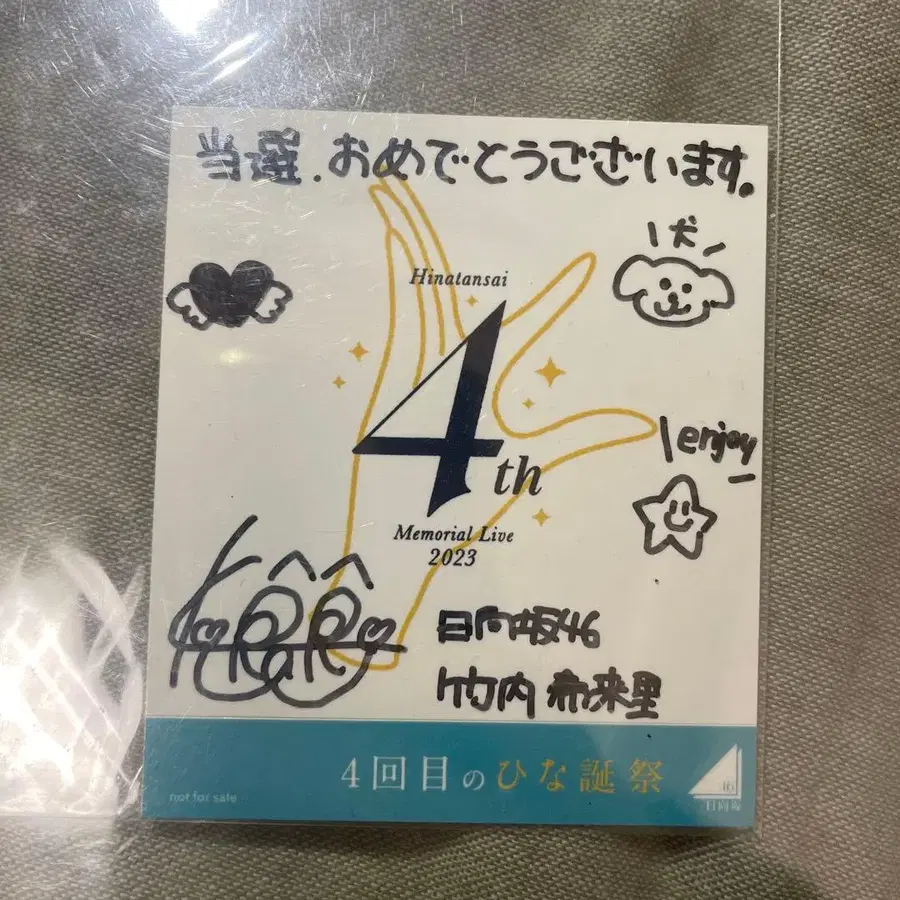 当選、おめでとうございます。
Hinatansai
\犬/
4th
\enjoy/
Memorial Live
2023
日向坂46
竹内希来里
4回目のひな誕祭
not for sale
46
日向坂